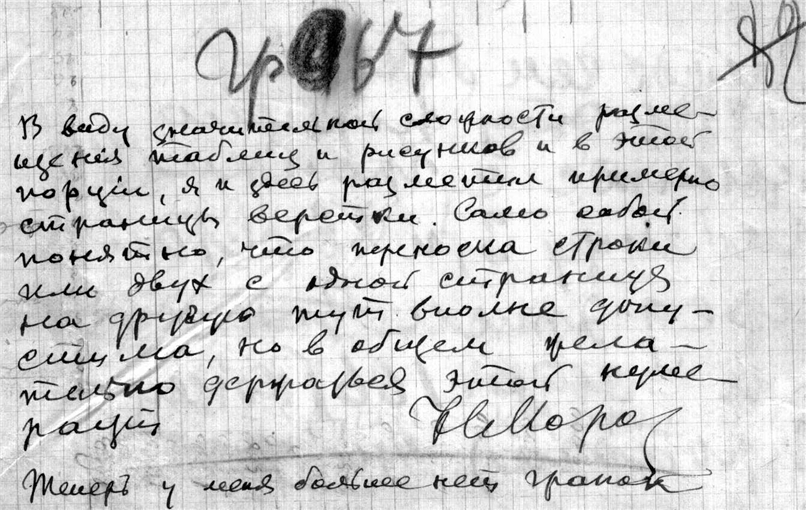 В виду значительной сложности разме-
щения таблиц и рисунков и в этой
порции, я и здесь разметил примерно
страницы верстки. Само собой
понятно, что переноска строки
или двух с одной страницы
на другую тут вполне допу-
стима, но в общем жела-
тельно держаться этой нуме-
рации
Теперь у меня больше нет гранок